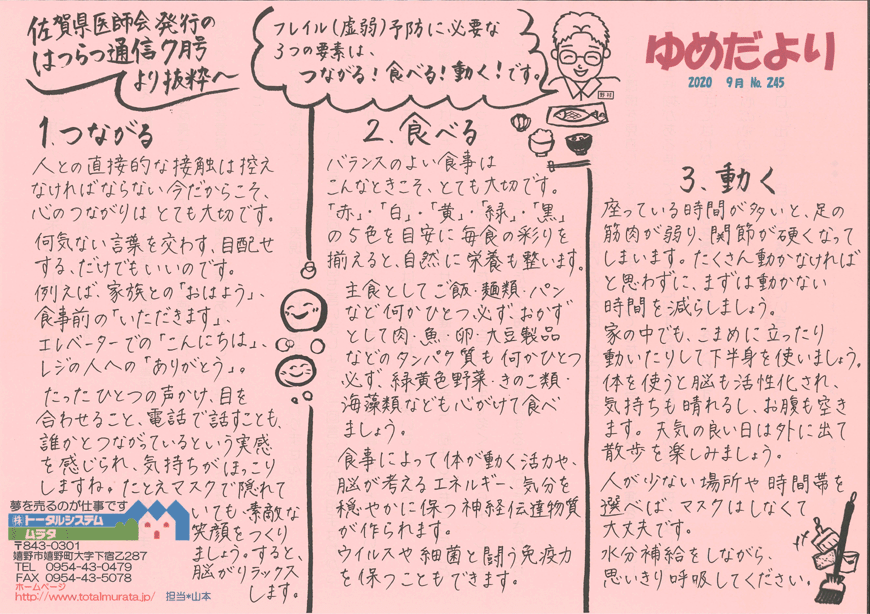 佐賀県医師会発行の
はつらつ通信7月号
より抜粋へ
フレイル(虚弱)予防に必要な
3つの要素は、
つながる!食べる!動く!です。
野村
ゆめだより
2020 9月 No. 245
1.つながる
人との直接的な接触は控え
なければならない今だからこそ、
心のつながりはとても大切です。
何気ない言葉を交わす、目配せ
する、だけでもいいのです。
例えば、家族との「おはよう」、
食事前の「いただきます」、
エレベーターでの「こんにちは」、
レジの人への「ありがとう」。
たったひとつの声かけ、目を
合わせること、電話で話すことも、
誰かとつながっているという実感
を感じられ、気持ちがほっこり
しますね。たとえマスクで隠れて
いても素敵な
笑顔をつくり
ましょう。すると、
脳がリラックス
します。
2.食べる
バランスのよい食事は
こんなときこそ、とても大切です。
「赤」・「白」・「黄」・「緑」・「黒」
の5色を目安に毎食の彩りを
揃えると、自然に栄養も整います。
主食としてご飯・麺類・パン
など何かひとつ必ずおかず
として肉・魚・卵・大豆製品
などのタンパク質も何かひとつ
必ず、緑黄色野菜・きのこ類・
海藻類なども心がけて食べ
ましょう。
食事によって体が動く活力や、
脳が考えるエネルギー、気分を
穏やかに保つ神経伝達物質
が作られます。
ウイルスや細菌と闘う免疫力
を保つこともできます。
3.動く
座っている時間が多いと、足の
筋肉が弱り、関節が硬くなって
しまいます。たくさん動かなければ
と思わずに、まずは動かない
時間を減らしましょう。
家の中でも、こまめに立ったり
動いたりして下半身を使いましょう。
体を使うと脳も活性化され、
気持ちも晴れるし、お腹も空き
ます。天気の良い日は外に出て
散歩を楽しみましょう。
人が少ない場所や時間帯を
選べば、マスクはしなくて
大丈夫です。
水分補給をしながら、
思いきり呼吸してください。
夢を売るのが仕事です
(株)トータルシステム
ムラタ
〒843-0301
嬉野市嬉野町大字下宿乙287
TEL 0954-43-0479
FAX 0954-43-5078
ホームページ
http://www.totalmurata.jp/ 担当*山本